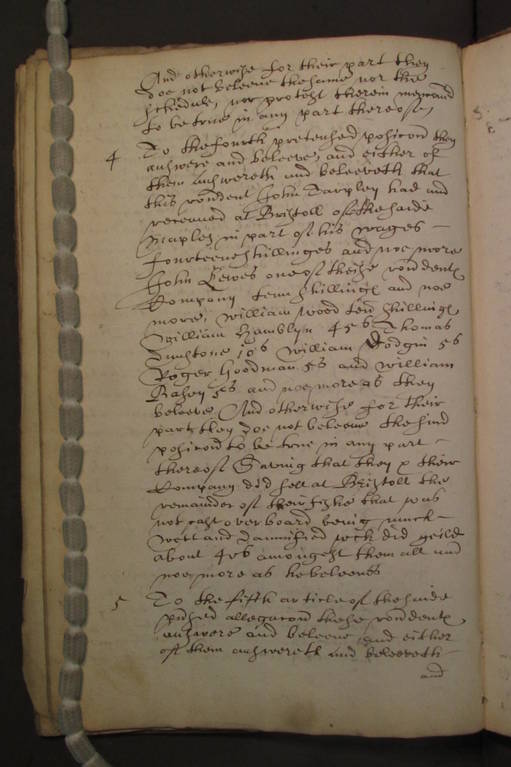 And otherwise for their part they
doe not beleeve the same nor the
schedule, nor protest therein menconed
to be true in any part thereof,
4 To the fourth pretensed posicon they
answere and beleeve, and either of
them answereth and beleeveth that
this rondent John Tarpley had and
receaved at Bristoll of the saide
Maples in part of his wages
fourteene shillinges and noe more
John Lewes one of theise rondents
Company tenn shillings and noe
more, William Wood tenn shillings
William Hamblyn 45s Thomas
10s William Dodgin 5s
Roger Goodman 5s and William
5s and noe more as they
beleeve And otherwise for their
part they doe not beleeve the said
posicon to be true in any part
thereof Saving that they & their
Company did sell at Bristoll the
remainder of their fishe that was
not cast overboard being much
wett and damnified wch did yeild
about 40s amongest them all and
noe more as he beleeves
5 To the fifth article of the saide
allegacon these rondents
answere and beleeve, and either
of them answereth and beleeveth
and